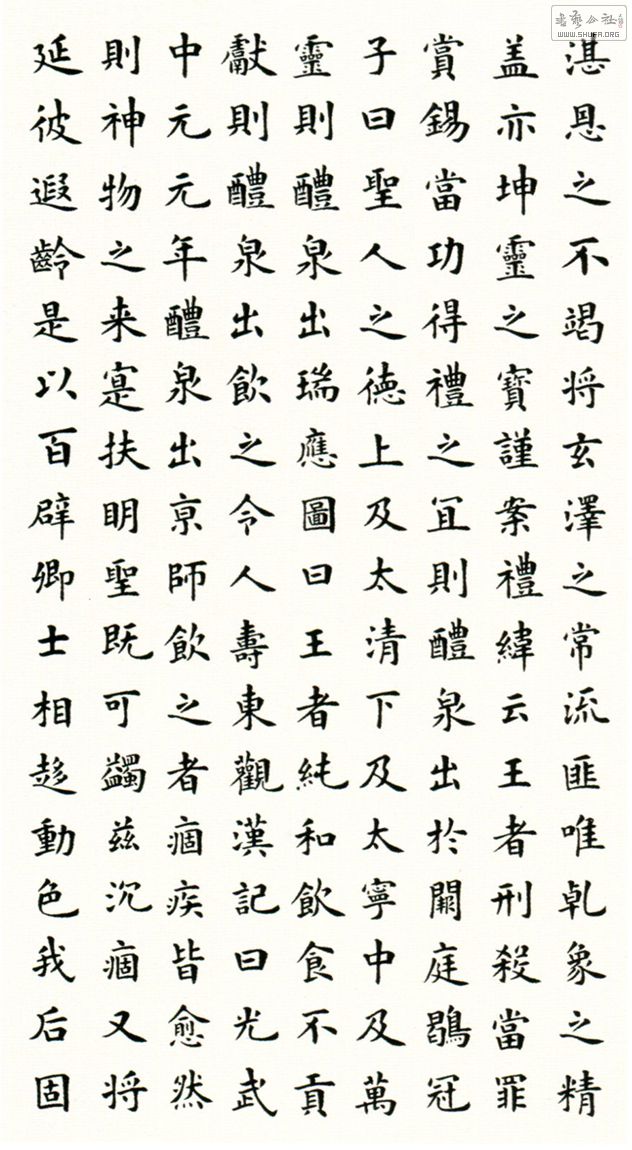 湛恩之不竭将玄澤之常流匪唯乹象之精
盖亦坤靈之寶謹案禮緯云王者刑殺當罪
賞錫當功得禮之冝則醴泉出於闕庭鶡冠
子曰聖人之徳上及太清下及太寧中及萬
靈則醴泉出瑞應圖曰王者純和飲食不貢
獻則醴泉出飲之令人壽東觀漢記曰光武
中元元年醴泉出京師飲之者痼疾皆愈然
則神物之来寔扶明聖既可蠲兹沉痼又将
延彼遐齡是以百辟卿士相趍動色我后固
書藝公社
WWW.SHUFA.ORG